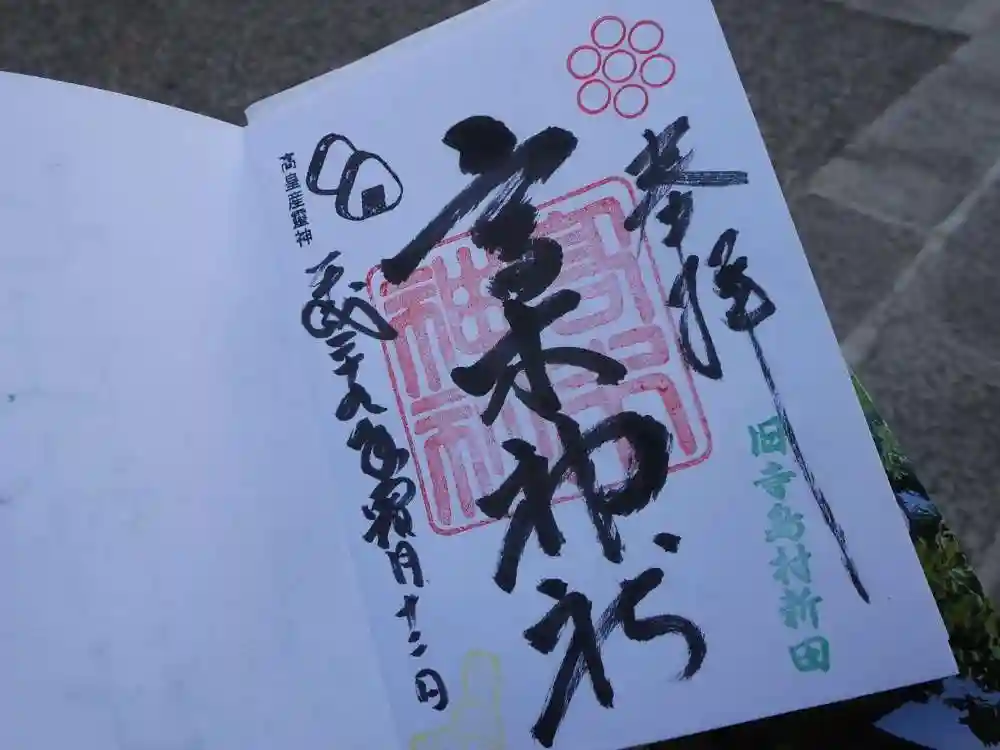 奉拝
旧寺島村新田
高木神社
高木神社
高皇産靈神
平成二十九年霜月十二日